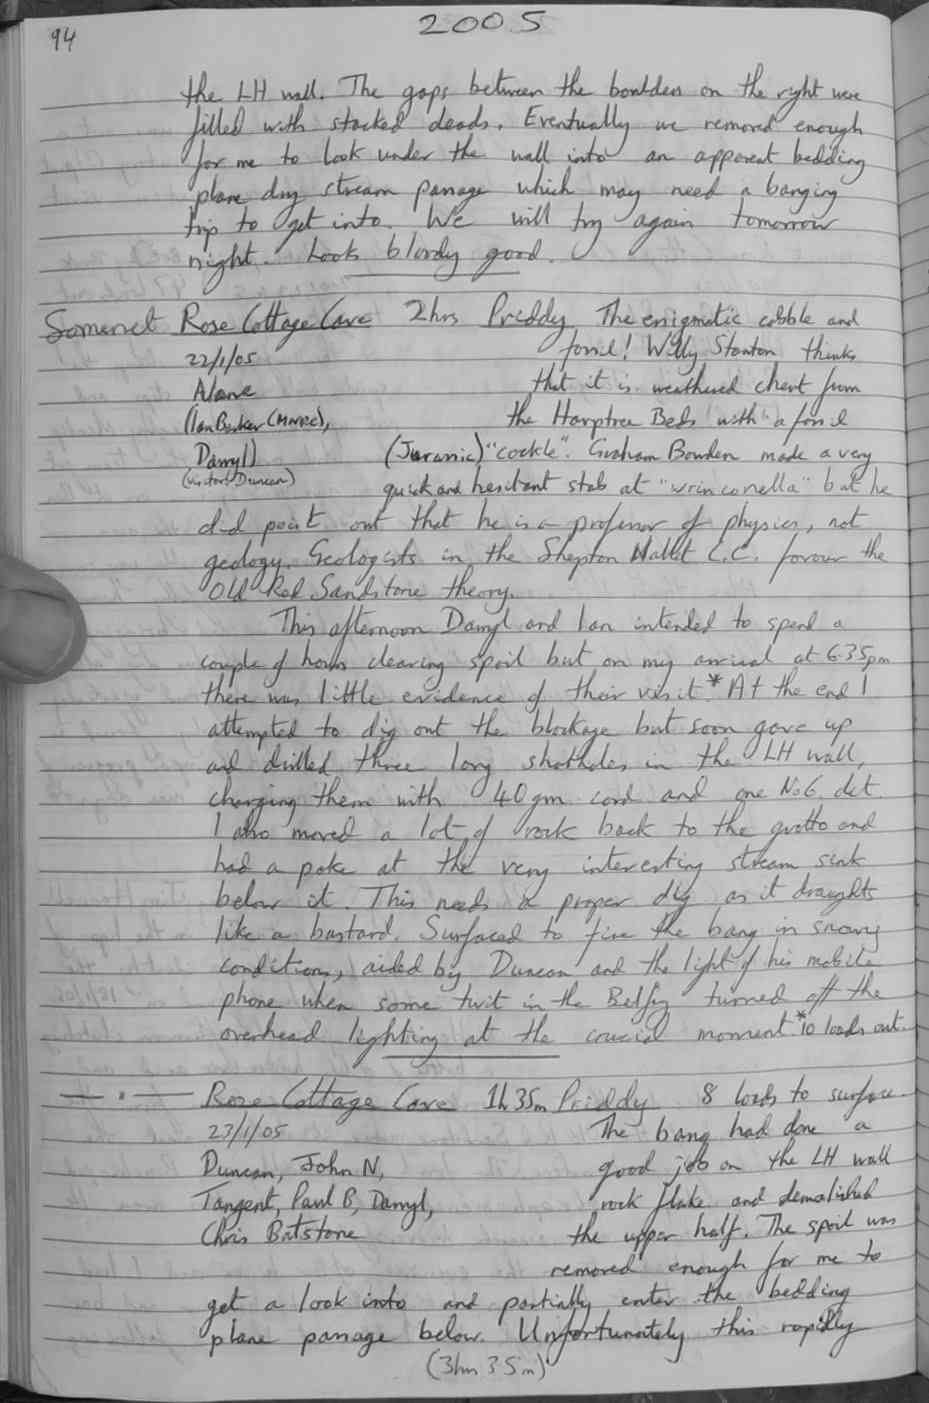 94
2005
the LH wall. The gaps between the boulders on the right were
filled with stacked deads. Eventually we removed enough
for me to look under the wall into an apparent bedding
plane dry stream passage which may need a banging
trip to get into. We will try again tomorrow
night. Looks bloody good.
Somerset Rose Cottage Cave 2hrs Priddy The enigmatic cobble and
22/1/05 fossil! Willy Stanton thinks
Alone that it is weathered chert from
(Ian Barker (MNRC), the Harptree Beds with a fossil
Darryl) (Jurassic) "cockle". Graham Bowden made a very
(visitors Duncan) quick and hesitant stab at "wrinconella" but he
did point out that he is a professor of physics, not
geology. Geologists in the Shepton Mallet C.C. favour the
Old Red Sandstone theory.
This afternoon Darryl and Ian intended to spend a
couple of hours clearing spoil but on my arrival at 6.35pm
there was little evidence of their visit.* At the end I
attempted to dig out the blockage but soon gave up
and drilled three long shotholes in the LH wall,
charging them with 40gm cord and one No6 det.
I also moved a lot of rock back to the grotto and
had a poke at the very interesting stream sink
below it. This needs a proper dig as it draughts
like a bastard. Surfaced to fire the bang in snowy
conditions, aided by Duncan and the light of his mobile
phone when some twit in the Belfry turned off the
overhead lighting at the crucial moment. *10 loads out.
— " — Rose Cottage Cave 1h 35m Priddy 8 loads to surface.
23/1/05 The bang had done a
Duncan, John N, good job on the LH wall
Tangent, Paul B, Darryl, rock flake and demolished
Chris Batstone the upper half. The spoil was
removed enough for me to
get a look into and partially enter the bedding
plane passage below. Unfortunately this rapidly
(3hrs 35m)